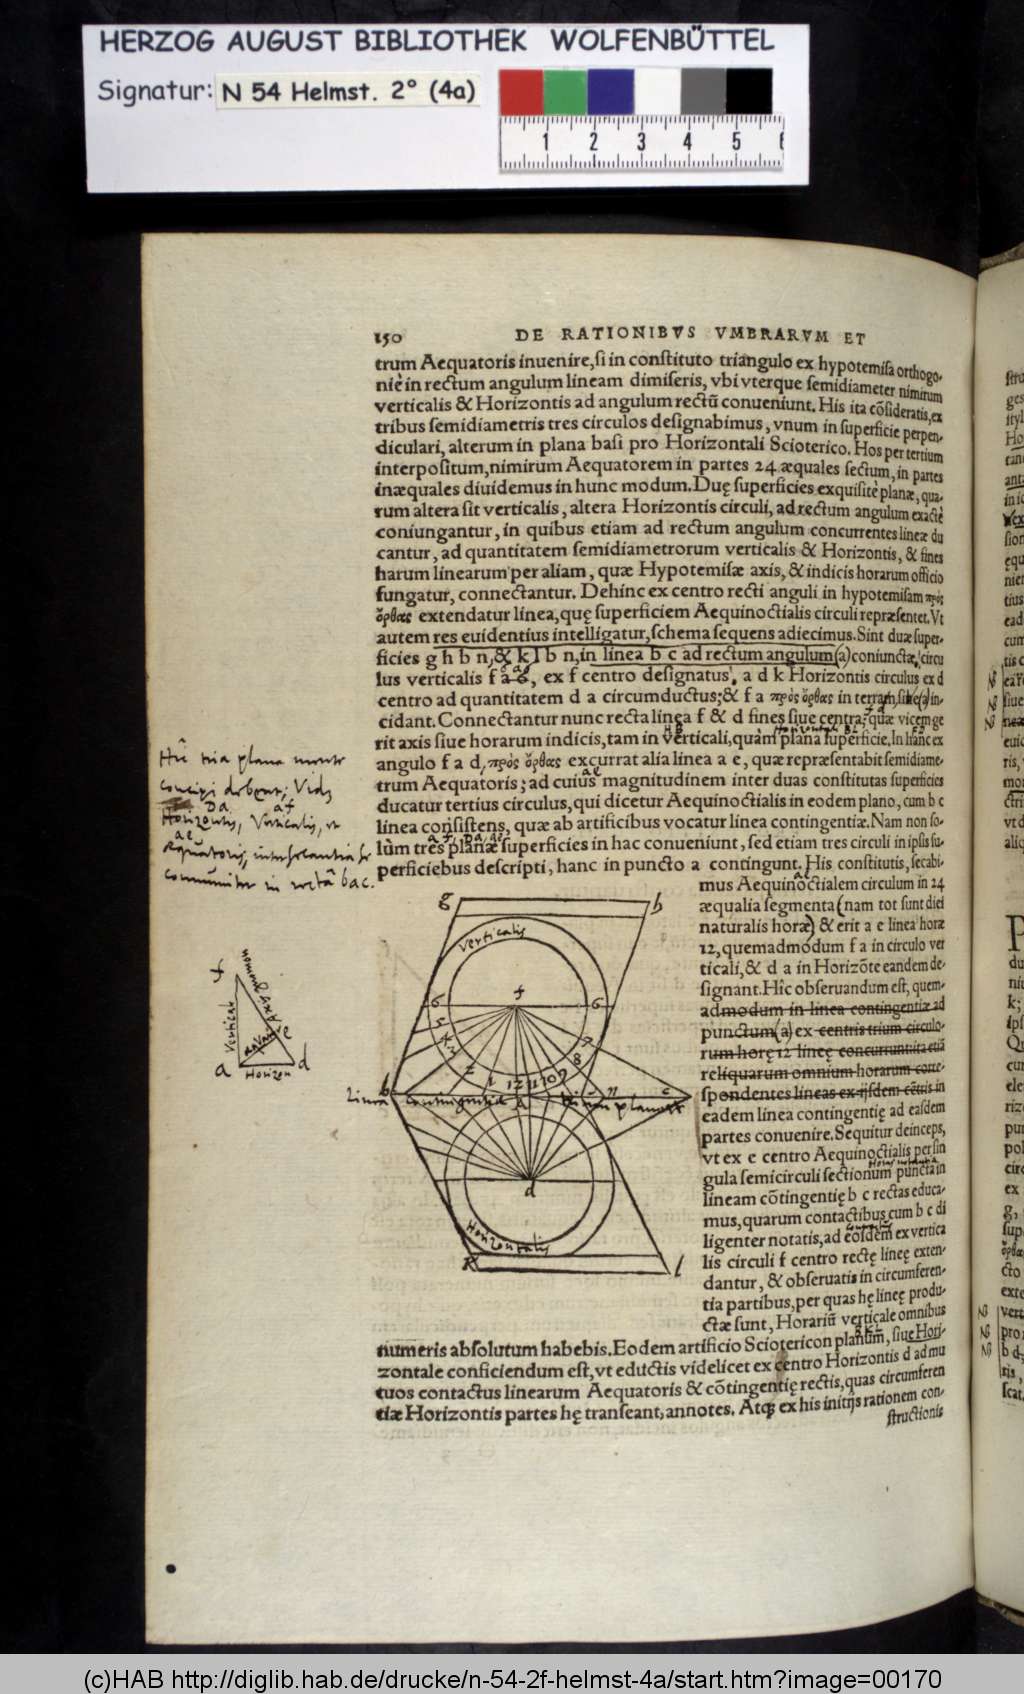 HERZOG AUGUST BIBLIOTHEK WOLFENBÜTTEL
Signatur: N 54 Helmst. 2° (4a)
1 2 3 4 5 6
150 DE RATIONIBVS VMBRARVM ET
trum Aequatoris inuenire, si in constituto triangulo ex hypotemisa orthogo-
niè in rectum angulum lineam dimiseris, vbi vterque semidiameter nimirum
verticalis & Horizontis ad angulum rectū conueniunt. His ita cōsideratis, ex
tribus semidiametris tres circulos designabimus, vnum in superficie perpen-
diculari, alterum in plana basi pro Horizontali Scioterico. Hos per tertium
interpositum, nimirum Aequatorem in partes 24 æquales sectum, in partes
inæquales diuidemus in hunc modum. Duę superficies exquisitè planæ, qua-
rum altera sit verticalis, altera Horizontis circuli, ad rectum angulum exactè
coniungantur, in quibus etiam ad rectum angulum concurrentes lineæ du
cantur, ad quantitatem semidiametrorum verticalis & Horizontis, & fines
harum linearum per aliam, quæ Hypotemisæ axis, & indicis horarum officio
fungatur, connectantur. Dehinc ex centro recti anguli in hypotemisam πρὸς
ὄρθας extendatur linea, quę superficiem Aequinoctialis circuli repræsentet. Vt
autem res euidentius intelligatur, schema sequens adiecimus. Sint duæ super-
ficies g h b n, & k l b n, in linea b c ad rectum angulum (a) coniunctæ, circu
lus verticalis f a 6, ex f centro designatus, a d k Horizontis circulus ex d
centro ad quantitatem d a circumductus; & f a πρὸς ὄρθας in terram, siue (a) in-
cidant. Connectantur nunc recta linea f & d fines siue centra, quæ vicem ge
rit axis siue horarum indicis, tam in verticali, quàm plana superficie. In hanc ex
angulo f a d, πρὸς ὄρθας excurrat alia linea a e, quæ repræsentabit semidiame-
trum Aequatoris; ad cuius magnitudinem inter duas constitutas superficies
ducatur tertius circulus, qui dicetur Aequinoctialis in eodem plano, cum b c
linea consistens, quæ ab artificibus vocatur linea contingentiæ. Nam non so-
lùm tres planæ superficies in hac conueniunt, sed etiam tres circuli in ipsis su-
perficiebus descripti, hanc in puncto a contingunt. His constitutis, secabi-
mus Aequinoctialem circulum in 24
æqualia segmenta (nam tot sunt diei
naturalis horæ) & erit a e linea horæ
12, quemadmodum f a in circulo ver
ticali, & d a in Horizōte eandem de-
signant. Hîc obseruandum est, quem-
admodum in linea contingentiæ ad
punctum (a) ex centris trium circulo-
rum horę 12 lineę concurrunt ita etiā
reliquarum omnium horarum corre-
spondentes lineas ex ijsdem cētris in
eadem linea contingentię ad easdem
partes conuenire. Sequitur deinceps,
vt ex e centro Aequinoctialis per sin
gula semicirculi sectionum puncta in
lineam cōtingentię b c rectas educa-
mus, quarum contactibus cum b c di
ligenter notatis, ad eosdem ex vertica
lis circuli f centro rectę lineę exten-
dantur, & obseruatis in circumferen-
tia partibus, per quas hę lineę produ-
ctæ sunt, Horariū verticale omnibus
numeris absolutum habebis. Eodem artificio Sciotericon planum, siue Hori-
zontale conficiendum est, vt eductis videlicet ex centro Horizontis d ad mu
tuos contactus linearum Aequatoris & cōtingentię rectis, quas circumferen
tiæ Horizontis partes hę transeant, annotes. Atq; ex his initijs rationem con-
structionis
Hîc tria plana mente
concipi debent; Vidz
Da af
Horizontis, Verticalis, et
ae
Aequatoris, intersecantia se
communiter in rectâ bac.
f
Vertical
Axis gnomon
e
a
d
Horizon
g h
Verticalis
f
6 6
7
8
2 1 12 11 10 9
b n c
Linea contingentiæ
A
d
Horizontalis
K l
(c)HAB http://diglib.hab.de/drucke/n-54-2f-helmst-4a/start.htm?image=00170